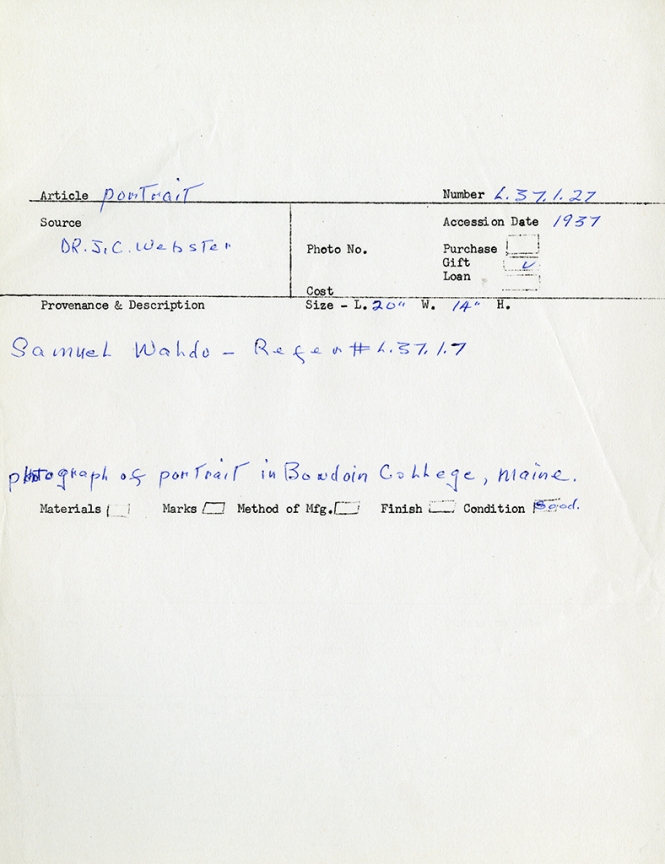 Article portrait Number L.37.1.27
Source Accession Date 1937
DR. J.C. Webster Photo No. Purchase
Gift ✓
Loan
Cost
Provenance & Description Size - L. 20" W. 14" H.
Samuel Waldo - Refer # L.37.1.7
photograph of portrait in Bowdoin College, Maine.
Materials Marks Method of Mfg. Finish Condition Good.